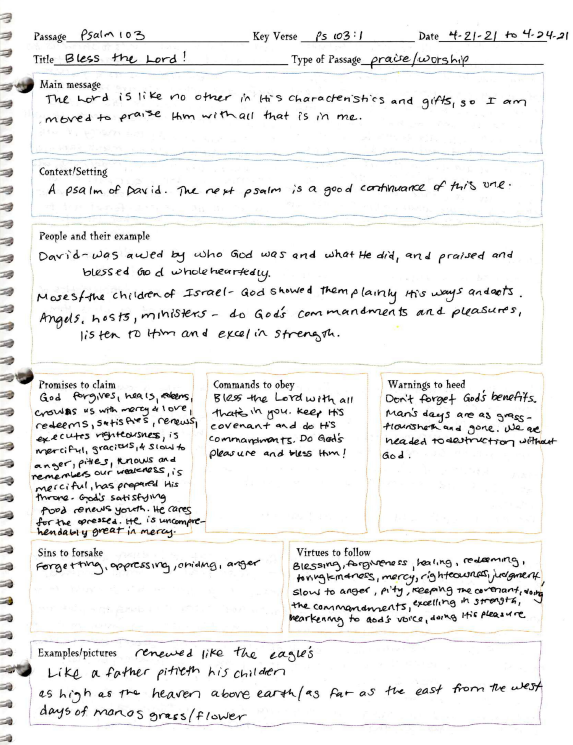 Passage Psalm 103 Key Verse Ps 103:1 Date 4-21-21 to 4-24-21
Title Bless the Lord! Type of Passage praise/worship
Main message
The Lord is like no other in His characteristics and gifts, so I am
moved to praise Him with all that is in me.
Context/Setting
A psalm of David. The next psalm is a good continuance of this one.
People and their example
David- was awed by who God was and what He did, and praised and
blessed God wholeheartedly.
Moses/the children of Israel- God showed them plainly His ways and acts.
Angels, hosts, ministers - do God's commandments and pleasures,
listen to Him and excel in strength.
Promises to claim
God forgives, heals,
crowns us with mercy & love,
redeems, satisfies, renews,
executes righteousness, is
merciful, gracious, & slow to
anger, pities, knows and
remembers our weakness, is
merciful, has prepared His
throne. God's satisfying
food renews youth. He cares
for the opressed. He is uncompre-
hendably great in mercy.
Commands to obey
Bless the Lord with all
that's in you. Keep His
covenant and do His
commandments. Do God's
pleasure and bless Him!
Warnings to heed
Don't forget God's benefits.
Man's days are as grass-
flourisheth and gone. We are
headed to destruction without
God.
Sins to forsake
Forgetting, oppressing, chiding, anger
Virtues to follow
Blessing, forgiveness, healing, redeeming,
lovingkindness, mercy, righteousness, judgment,
slow to anger, pity, keeping the covenant, doing
the commandments, excelling in strength,
hearkening to God's voice, doing His pleasure
Examples/pictures renewed like the eagle's
Like a father pitieth his children
as high as the heaven above earth/as far as the east from the west
days of man as grass/flower